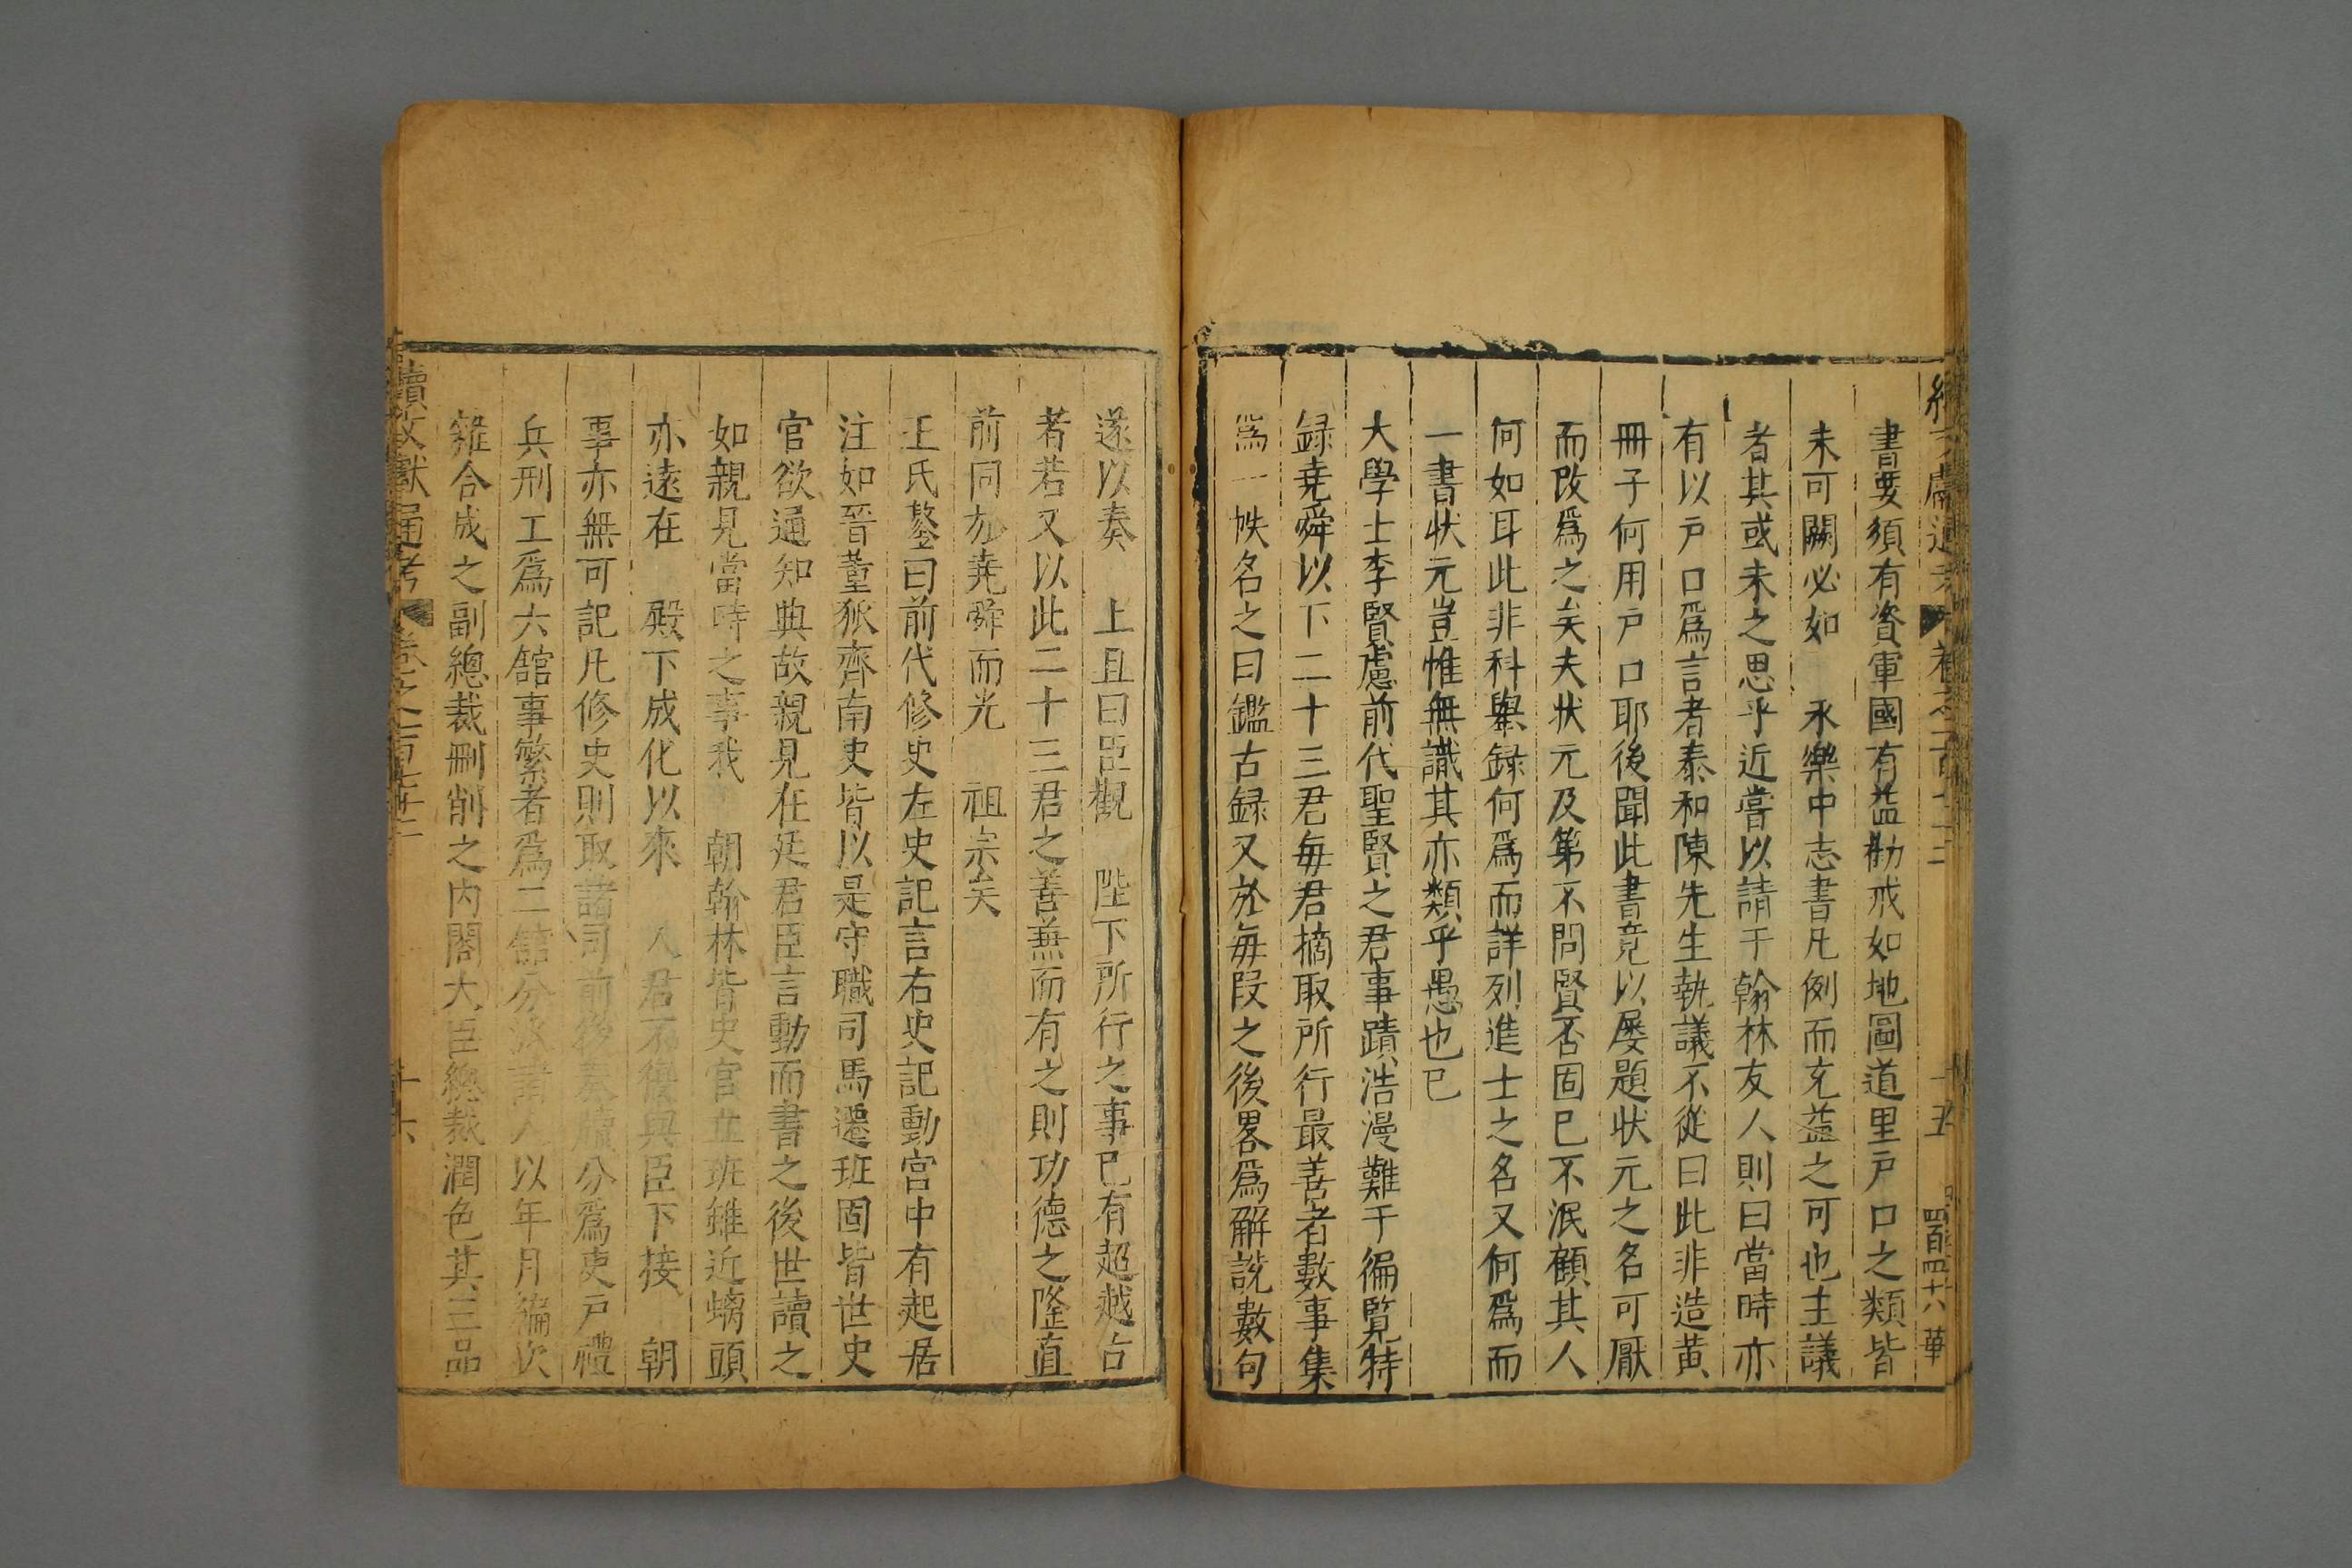 書要須有資軍國有益勸戒如地圖道里戸口之類皆
未可闕必如 永樂中志書凡例而充益之可也主議
者其或未之思乎近嘗以請于翰林友人則曰當時亦
有以戸口爲言者泰和陳先生執議不從曰此非造黄
冊子何用戸口耶後聞此書竟以屡題状元之名可厭
而改爲之矣夫状元及第不問賢否固已不泯顧其人
何如耳此非科舉録何爲而詳列進士之名又何爲而
一書状元豈惟無識其亦類乎愚也已
大學士李賢慮前代聖賢之君事蹟浩漫難于徧覧特
録尭舜以下二十三君毎君摘取所行最善者數事集
爲一帙名之曰鑑古録又於毎叚之後畧爲解説數句
遂以奏 上且曰臣觀 陛下所行之事已有超越古
者若又以此二十三君之善無而有之則功德之隆直
前同於尭舜而光 祖宗矣
王氏鏊曰前代修史左史記言右史記動宮中有起居
注如晉董狐齊南史皆以是守職司馬遷班固皆世史
官欲通知典故親見在廷君臣言動而書之後世讀之
如親見當時之事我 朝翰林皆史官立班雖近螭頭
亦遠在 殿下成化以來 人君不復與臣下接 朝
事亦無可記凡修史則取諸司前後奏牘分爲吏戸禮
兵刑工爲六舘事繁者爲二舘分派諸人以年月編次
雜合成之副總裁刪削之内閣大臣總裁潤色其三品
續文獻通考 卷之一百七十三 十六